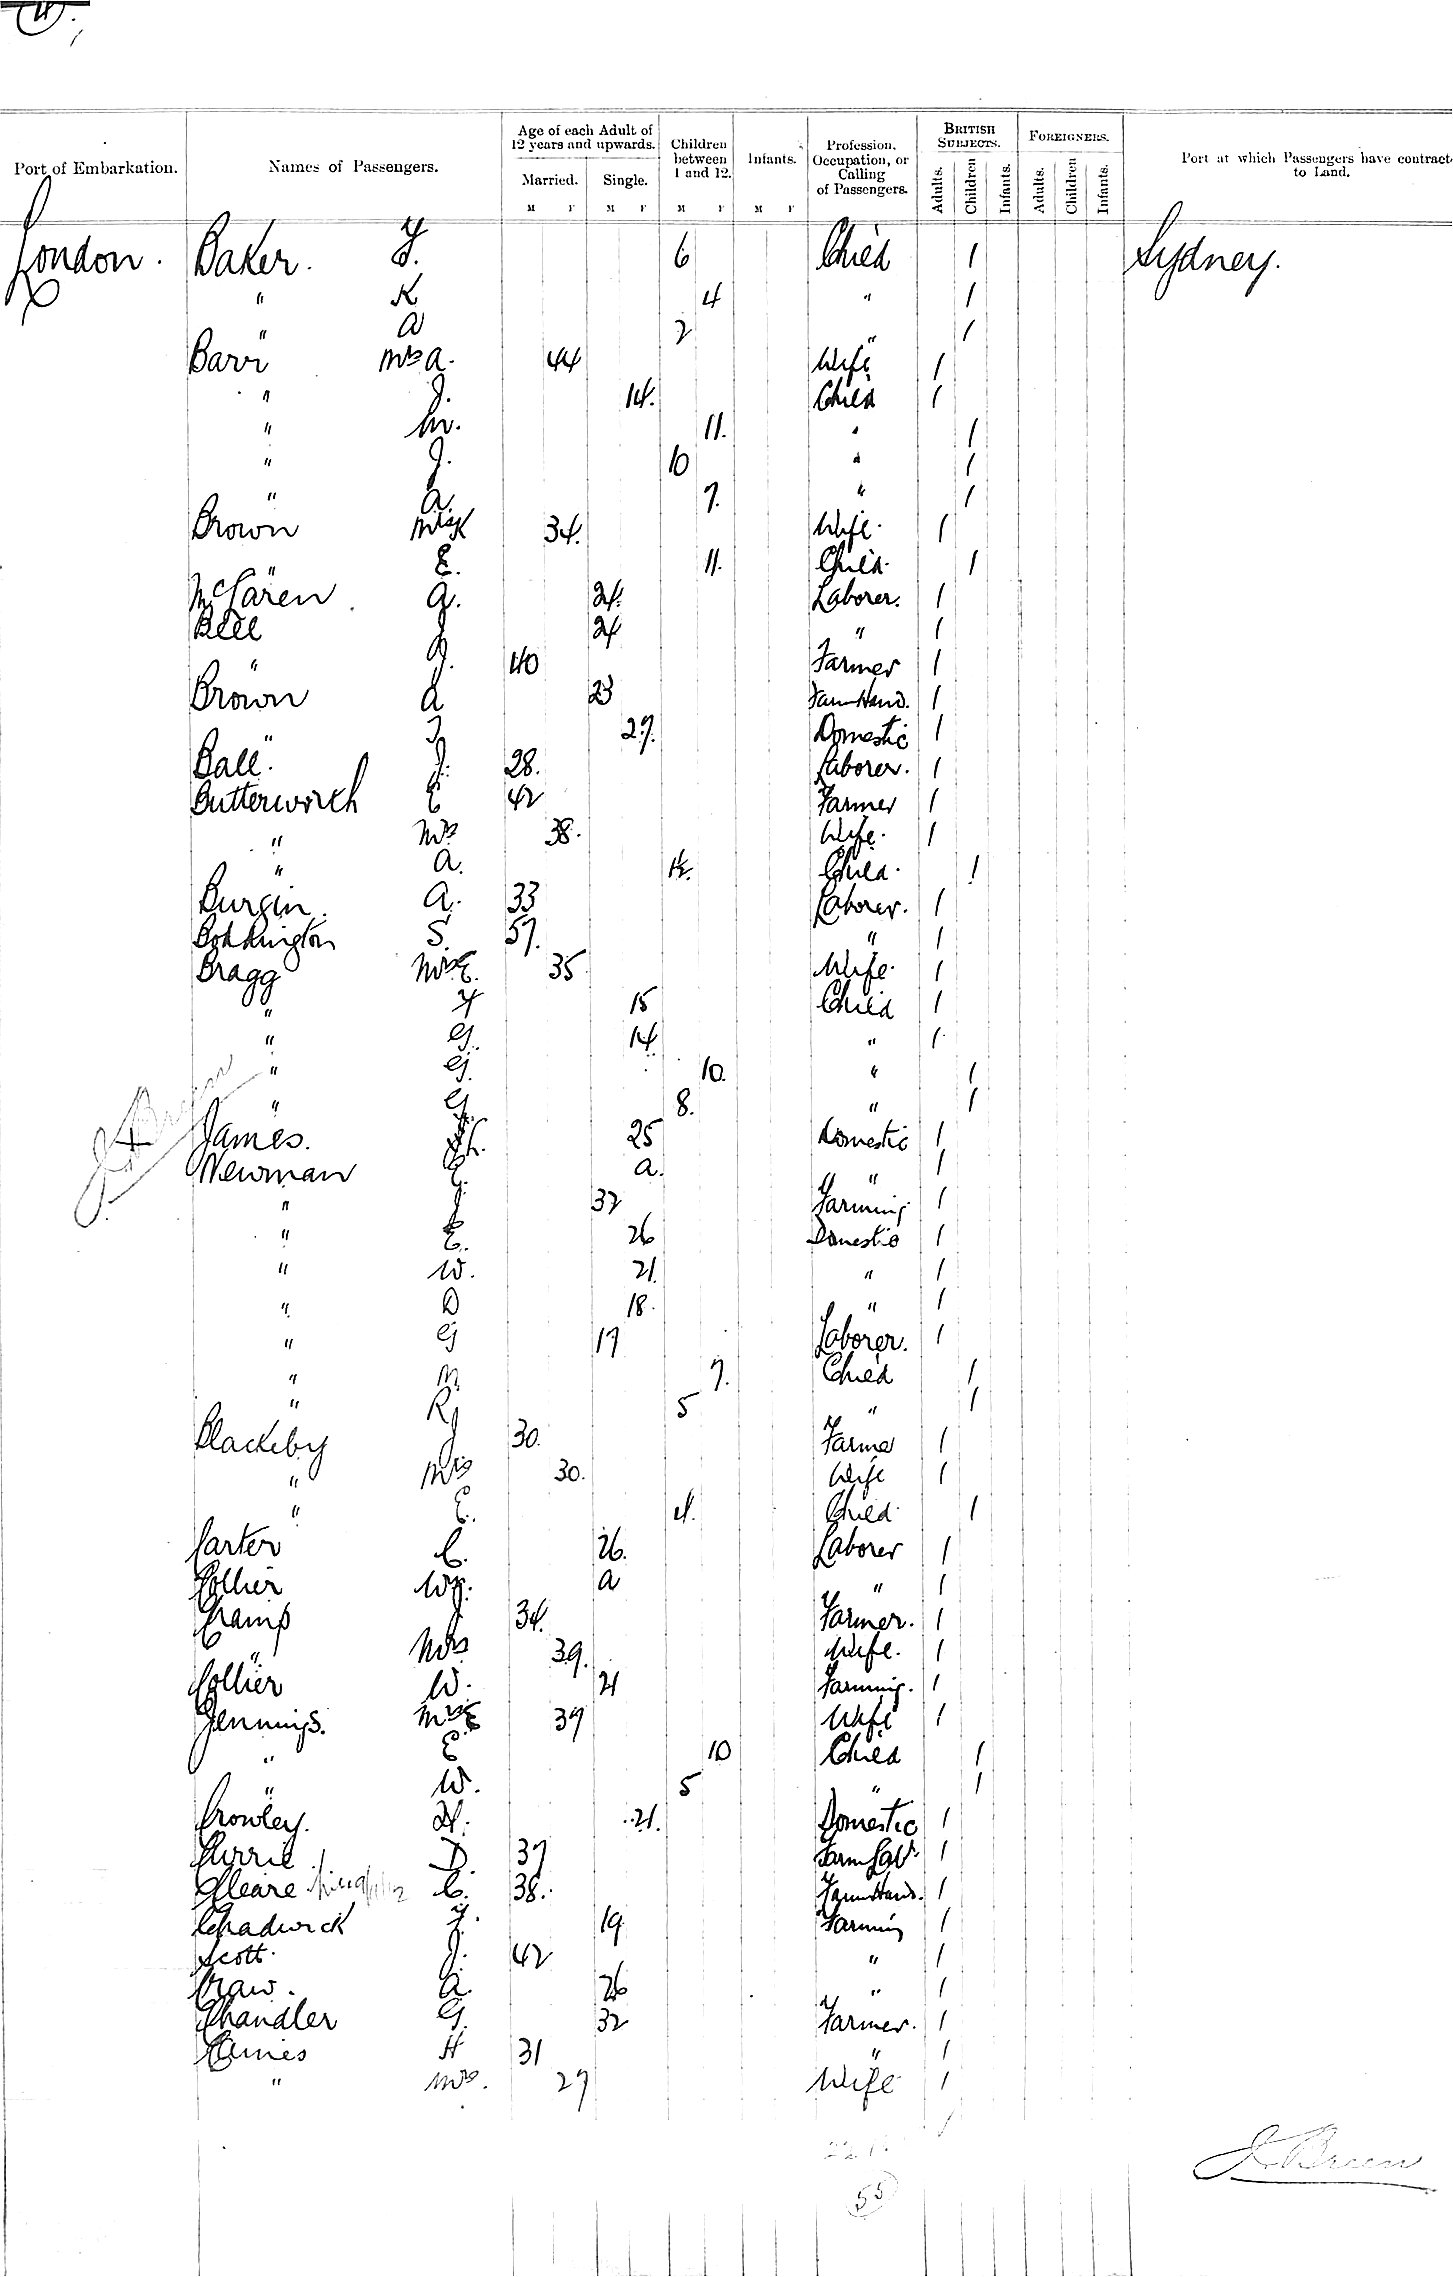 4.
Port of Embarkation. Names of Passengers. Age of each Adult of 12 years and upwards. Children between 1 and 12. Infants. Profession, Occupation, or Calling of Passengers. BRITISH SUBJECTS. FOREIGNERS. Port at which Passengers have contract to Land.
Married. Single. Adults. Children Infants. Adults. Children Infants.
M F M F M F M F
London. Baker. 6 Child 1 Sydney.
" K 4 " 1
" A 2 " 1
Barr Mrs A. 44 Wife 1
" J. 14. Child 1
" M. 11. " 1
" J. 10 " 1
" A. 7. " 1
Brown Mrs K 34. Wife. 1
" E. 11. Child. 1
McLaren A. 24. Laborer. 1
Bell J. 24 " 1
" 40 Farmer 1
Brown A 23 Farm Hand. 1
" 27. Domestic 1
Ball. J. 28. Laborer. 1
Butterworth E 42 Farmer 1
" Mrs 38. Wife. 1
" A. 1½. Child. 1
Burgin. A. 33 Laborer. 1
S. 57. " 1
Bragg Mrs E. 35 Wife. 1
" 15 Child 1
" G. 14. " 1
" G. 10. " 1
" G. 8. " 1
James. 25 Domestic 1
Newman E. a. " 1
" J 32 Farming. 1
" E. 26 Domestic 1
" W. 21. " 1
" D 18. " 1
" G 17 Laborer. 1
" M 7. Child 1
" R 5 " 1
Blackeby J 30. Farmer 1
" Mrs 30. Wife 1
" E. 4. Child. 1
Carter C. 26. Laborer 1
Collier a " 1
Cramp J 34. Farmer. 1
" Mrs 39. Wife. 1
Collier W. 21 Farming. 1
Jennings. Mrs E 39 Wife 1
" E 10 Child 1
" W. 5 " 1
Crowley. H. 21. Domestic 1
Currie D. 37 Farm Labr. 1
Cleare C. 38. Farm Hand. 1
Chadwick F. 19 Farming 1
Scott. J. 42 " 1
Craw. A. 26 " 1
Chandler G. 32 Farmer. 1
H 31 " 1
" Mrs. 27 Wife 1
55
J Breen